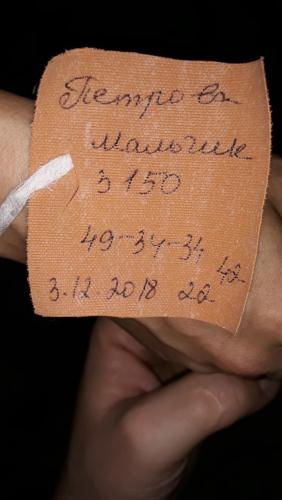 Петрова
Мальчик
3150
49-34-34
3.12.2018 22 42